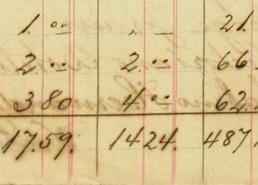 1. 00 " — 21.
2. 00 2. 00 66
3 80 4. 00 62.
17.59. 1424. 487.